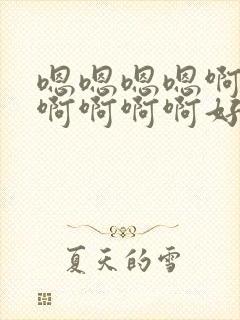 嗯嗯嗯嗯啊
啊啊啊啊好
夏天的雪